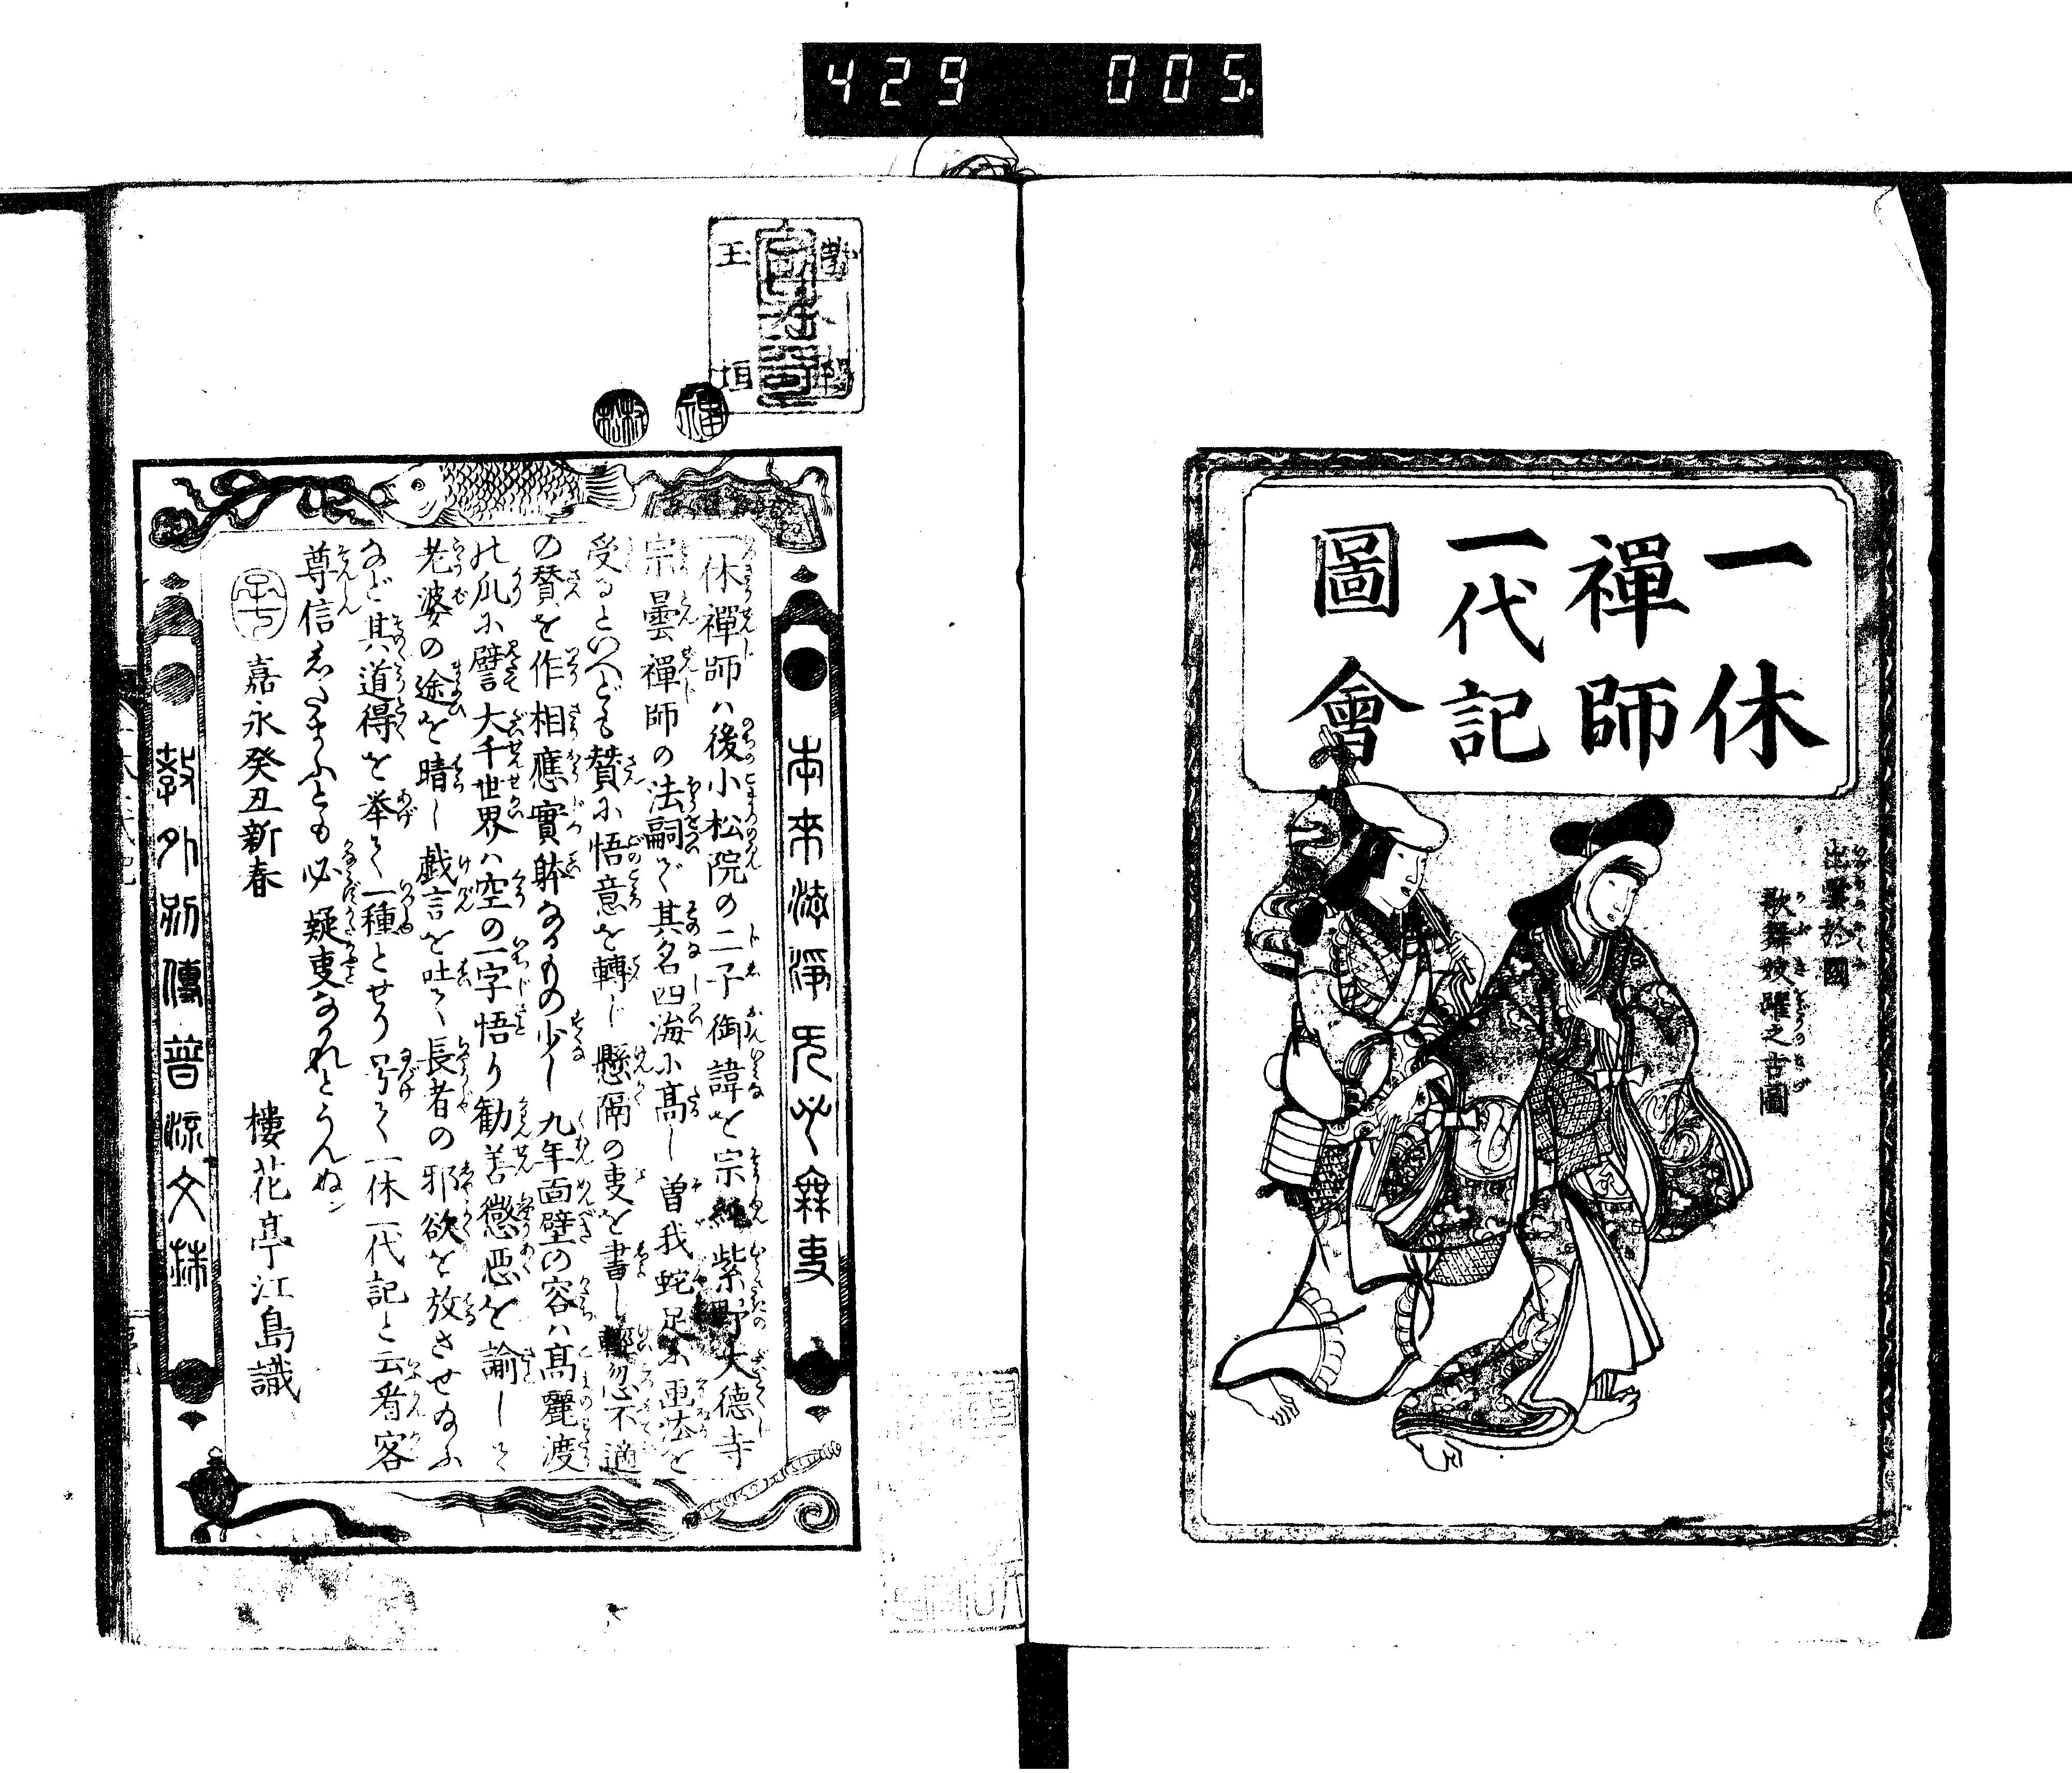 429 005
一休
禪師
一代記
圖會
出雲於國
歌舞妓躍之古圖
本来清浄无一無事
一休禪師ハ後小松院の二子御諱を宗純紫野大徳寺
宗曇禪師の法嗣で其名四海に高し曽我蛇足に画法を
受るといへども賛に悟意を轉じ懸隔の事を書し輕忽不適
の賛を作相應實躰なるもの少し九年面壁の容ハ高麗渡
の瓜に譬大千世界ハ空の一字悟り勧善懲悪を諭して
老婆の途を晴し戯言を吐て長者の邪欲を放させ給ふ
など其道得を挙て一種とせり号て一休一代記と云看客
尊信したまふとも必疑事なかれとうんぬン
嘉永癸丑新春
樓花亭江島識
教外別傳普流文